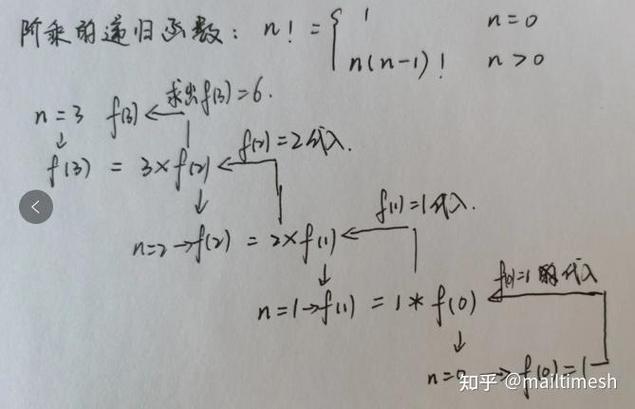 阶乘的递归函数: n! = { 1 n=0
n(n-1)! n>0
n=3 f(3) ← 求出f(3)=6.
↓
f(3) = 3×f(2) ← f(2)=2代入.
↓
n=2→f(2) = 2×f(1) ← f(1)=1代入.
↓
n=1→f(1) = 1*f(0) ← f(0)=1 代入
↓
n=0→f(0)=1
知乎 @mailtimesh